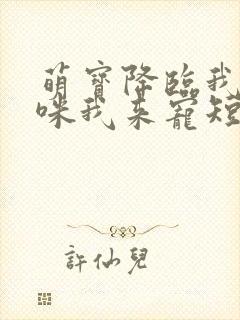 萌寶降臨我
咪我来寵短
許仙兒